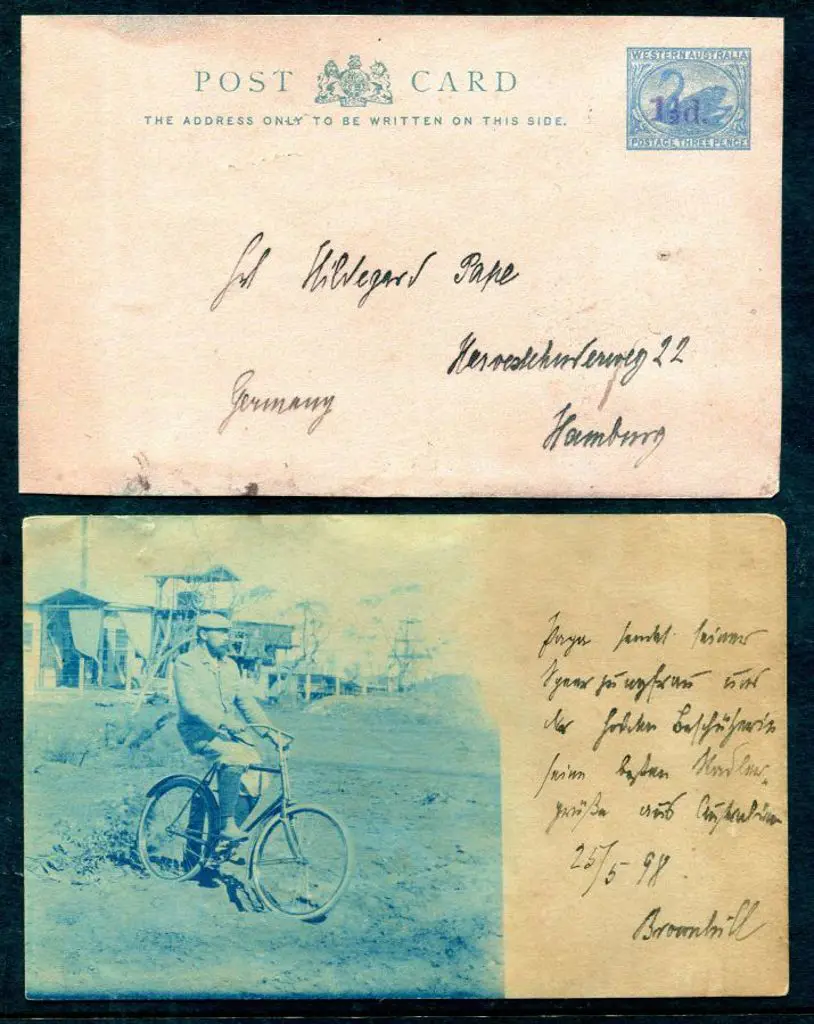 POST CARD
THE ADDRESS ONLY TO BE WRITTEN ON THIS SIDE.
WESTERN AUSTRALIA
1½d.
POSTAGE THREE PENCE
Frl Hildegard Pape
Harvestehuderweg 22
Germany
Hamburg
Papa sendet seiner
Speerjungfrau und
der holden Beschützerin
seine besten Radler-
grüße aus Australien
25/5 98
Brownhill